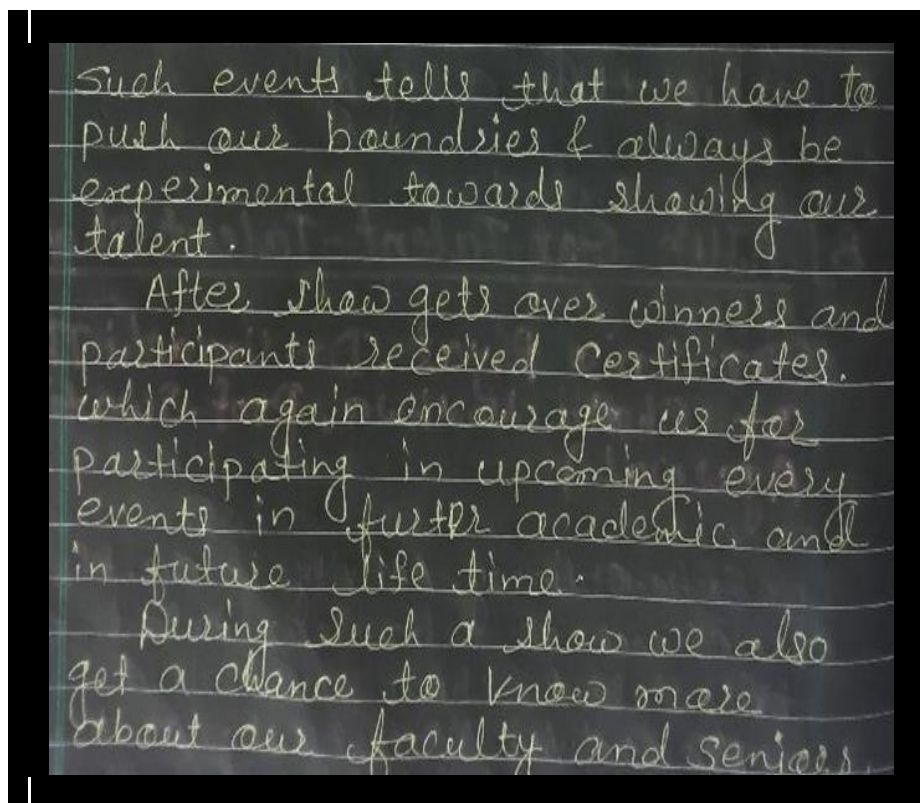 Such events tells that we have to
push our boundries & always be
experimental towards showing our
talent.
After show gets over winners and
participants received Certificates.
which again encourage us for
participating in upcoming every
events in furthr academic and
in future life time.
During such a show we also
get a chance to know more
about our faculty and seniors.